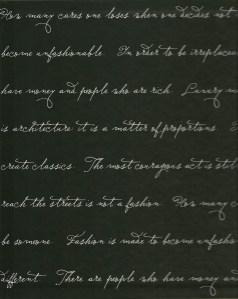 How many cares one loses when one decides not
become unfashionable. In order to be irreplacea
have money and people who are rich. Luxury mu
is architecture: it is a matter of proportions.
create classics. The most courageous act is still
reach the streets is not a fashion. How many
be someone. Fashion is made to become unfashio
different. There are people who have money an